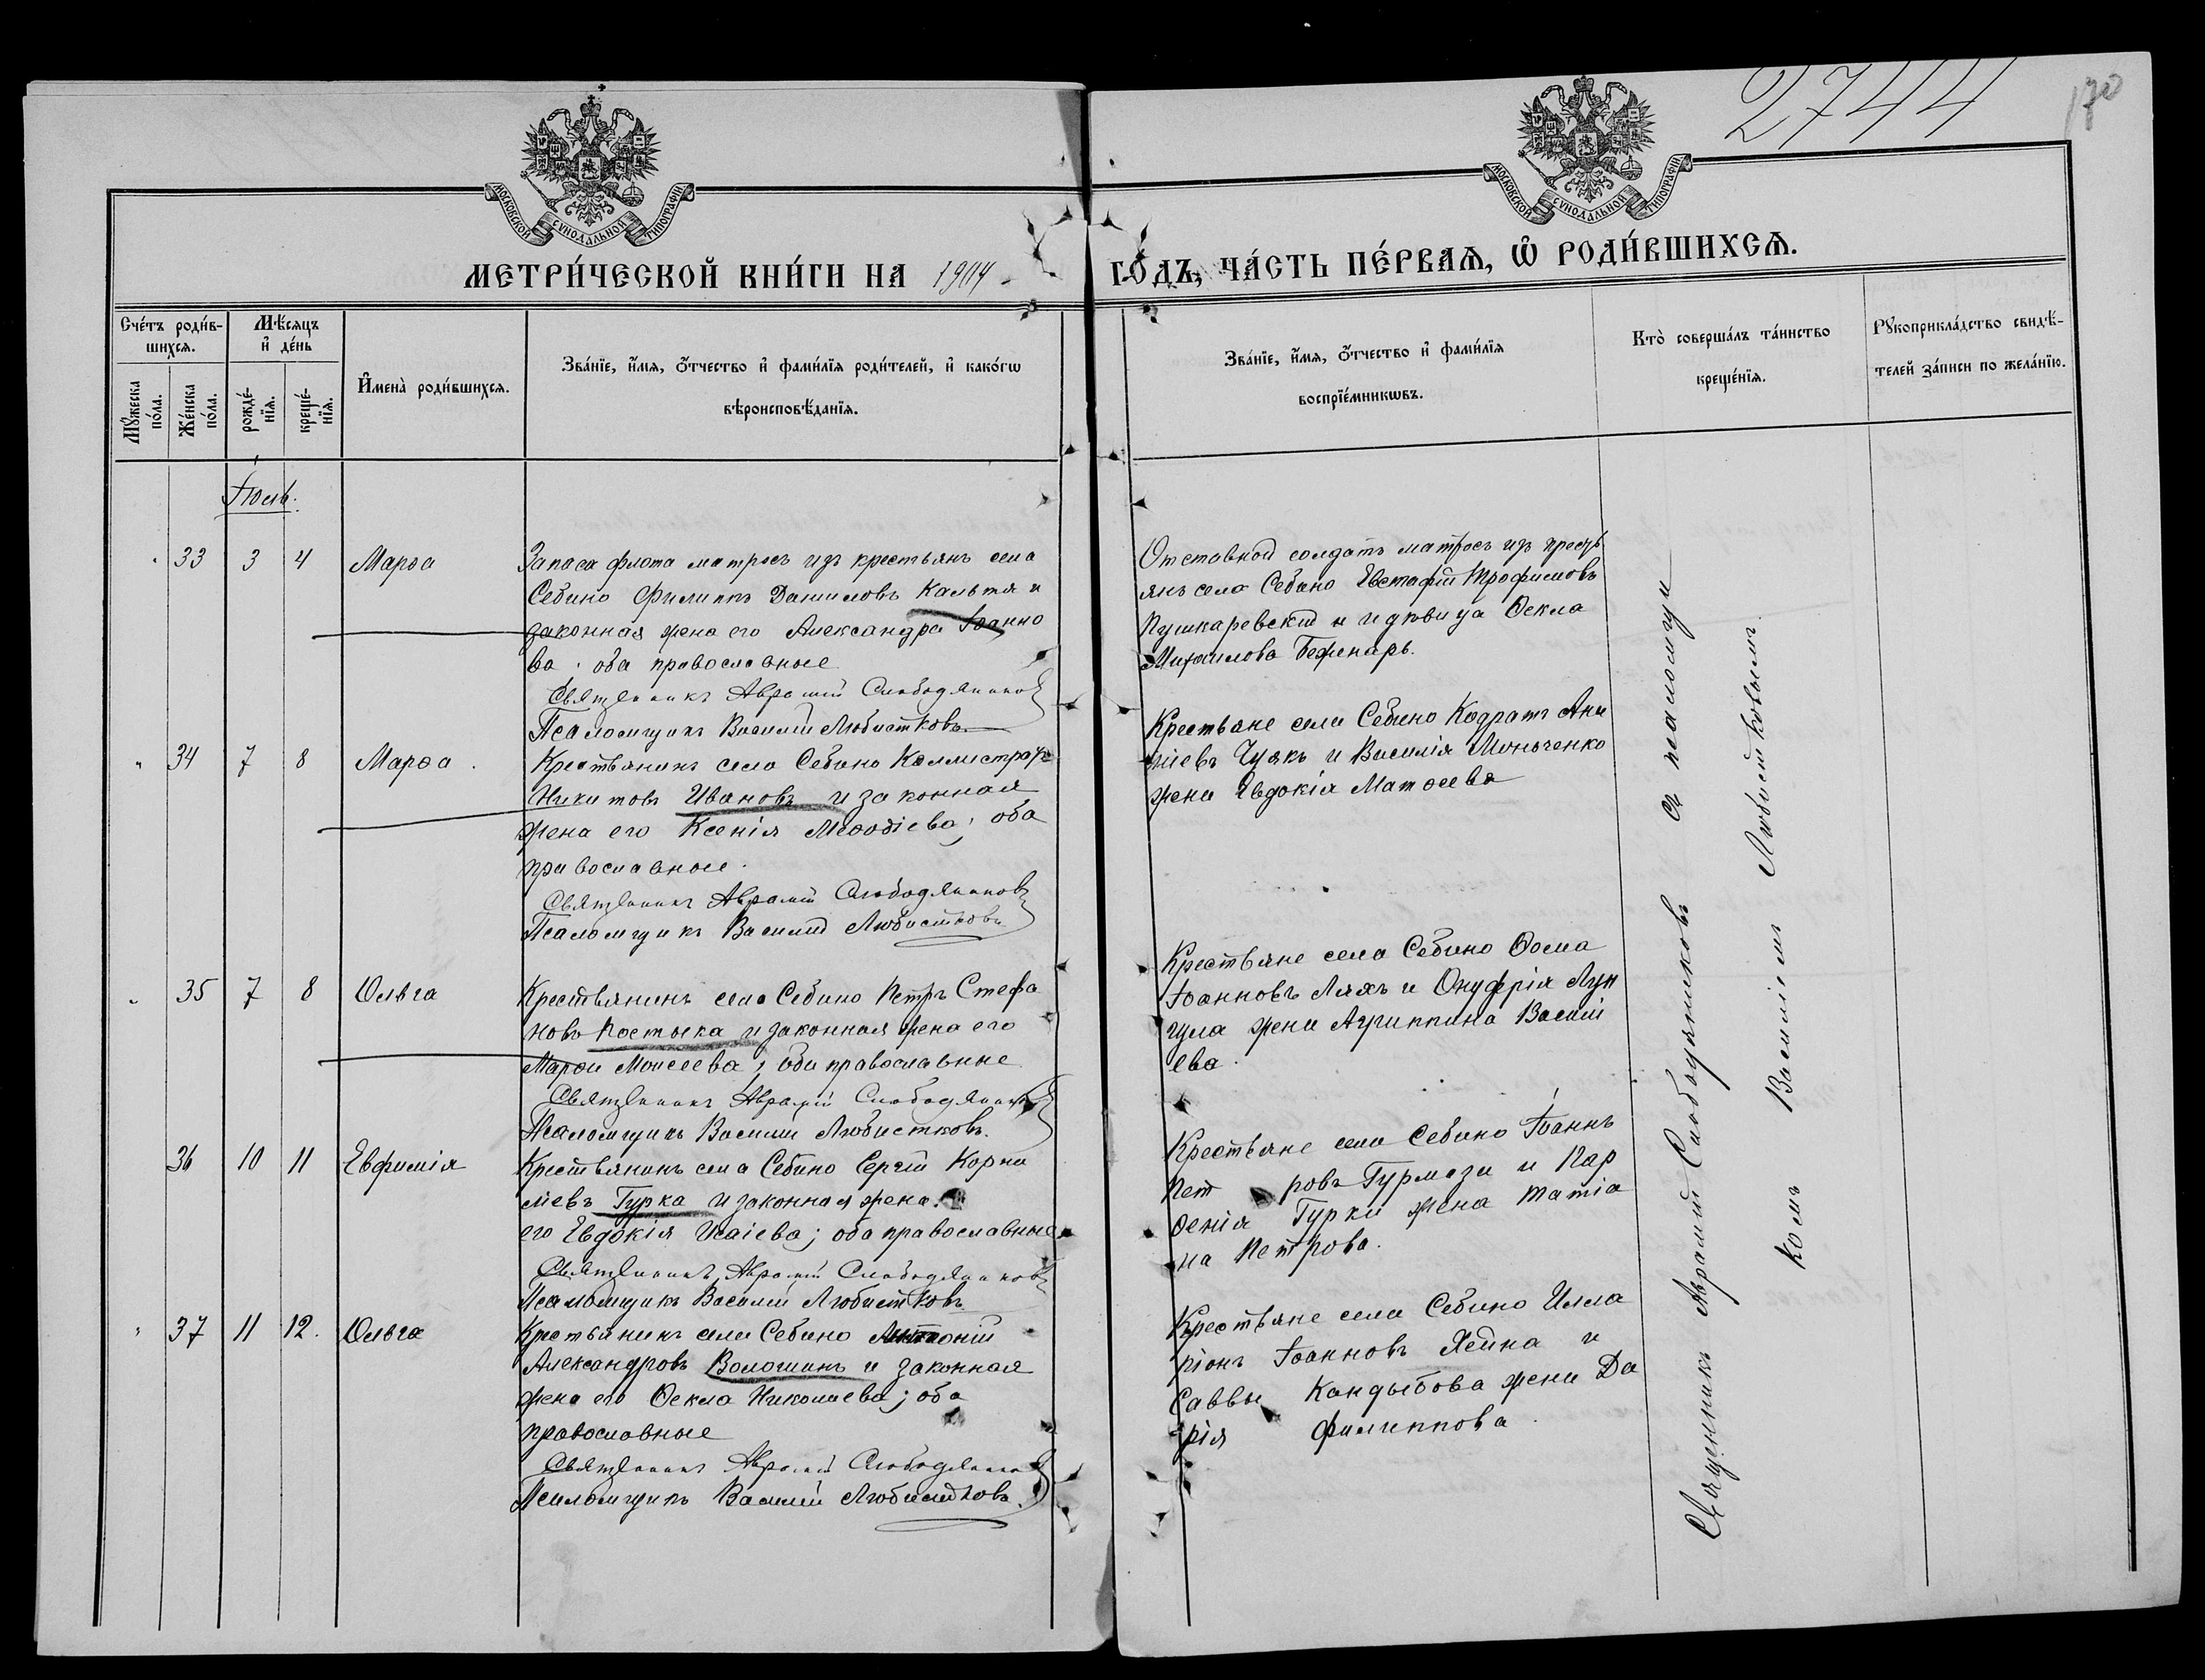 2744
170
МОСКОВСКОЙ СѴНОДАЛЬНОЙ ТИПОГРАФІИ
МОСКОВСКОЙ СѴНОДАЛЬНОЙ ТИПОГРАФІИ
МЕТРИ́ЧЕСКОЙ КНИ́ГИ НА 1904
ГО́ДЪ, ЧА́СТЬ ПЕ́РВАѦ, Ѡ РОДИ́ВШИХСѦ.
Сче́тъ роди́в-
шихсѧ.
Мꙋ́жеска
по́ла.
Же́нска
по́ла.
Мѣ́сяцъ
и҆ де́нь
рожде́-
нїѧ.
креще́-
нїѧ.
И҆мена̀ роди́вшихсѧ.
Зва́нїе, и҆́мѧ, ѻ҆́тчество и҆ фами́лїѧ роди́телей, и҆ како́гѡ
вѣроисповѣ́данїѧ.
Зва́нїе, и҆́мѧ, ѻ҆́тчество и҆ фами́лїѧ
воспрїе́мникѡвъ.
Кто̀ соверша́лъ та́инство
креще́нїѧ.
Рꙋкоприкла́дство свидѣ́-
телей за́писи по жела́нїю.
Іюль.
33 3 4 Марѳа
Запаса флота матросъ изъ крестьянъ села
Себино Филиппъ Даниловъ Кальтя и
законная жена его Александра Іоанно
ва. оба православные
Священникъ Аврамій Слободяниковъ
Псаломщикъ Василій Любистковъ
Отставной солдатъ матросъ изъ кресть
янъ села Себино Евстафій Трофимовъ
Пушкаревскій и вдовица Ѳекла
Михаилова Бежнарь.
34 7 8 Марѳа.
Крестьянинъ села Себино Каллистратъ
Никитовъ Ивановъ и законная
жена его Ксенія Меѳодіева; оба
православные.
Священникъ Аврамій Слободяниковъ
Псаломщикъ Василій Любистковъ
Крестьяне села Себино Кодратъ Ани
сіевъ Чуякъ и Василія Моньченко
жена Евдокія Матѳеева
35 7 8 Ольга
Крестьянинъ села Себино Петръ Стефа
новъ Постыка и законная жена его
Марѳа Моисеева; оба православные
Священникъ Аврамій Слободяниковъ
Псаломщикъ Василій Любистковъ.
Крестьяне села Себино Ѳома
Іоанновъ Ляхъ и Онуфрія Луп
гула жена Агриппина Васили
ева.
36 10 11 Евфимія
Крестьянинъ села Себино Сергій Корни
ліевъ Гурка и законная жена
его Евдокія Исаіева; оба православные
Священникъ Аврамій Слободяниковъ
Псаломщикъ Василій Любистковъ
Крестьяне села Себино Іоаннъ
Пет ровъ Гурмаза и Пар
ѳенія Гурки жена Татіа
на Петрова.
37 11 12. Ольга
Крестьянинъ села Себино Антоній
Александровъ Волошинъ и законная
жена его Ѳекла Николаева; оба
православные
Священникъ Аврамій Слободяниковъ
Псаломщикъ Василій Любистковъ.
Крестьяне села Себино Илла
ріонъ Іоанновъ Яейна и
Саввы Кандыбова жена Да
рія Филиппова.
Священникъ Аврамій Слободяниковъ съ псаломщи
комъ Василіемъ Любистковымъ.